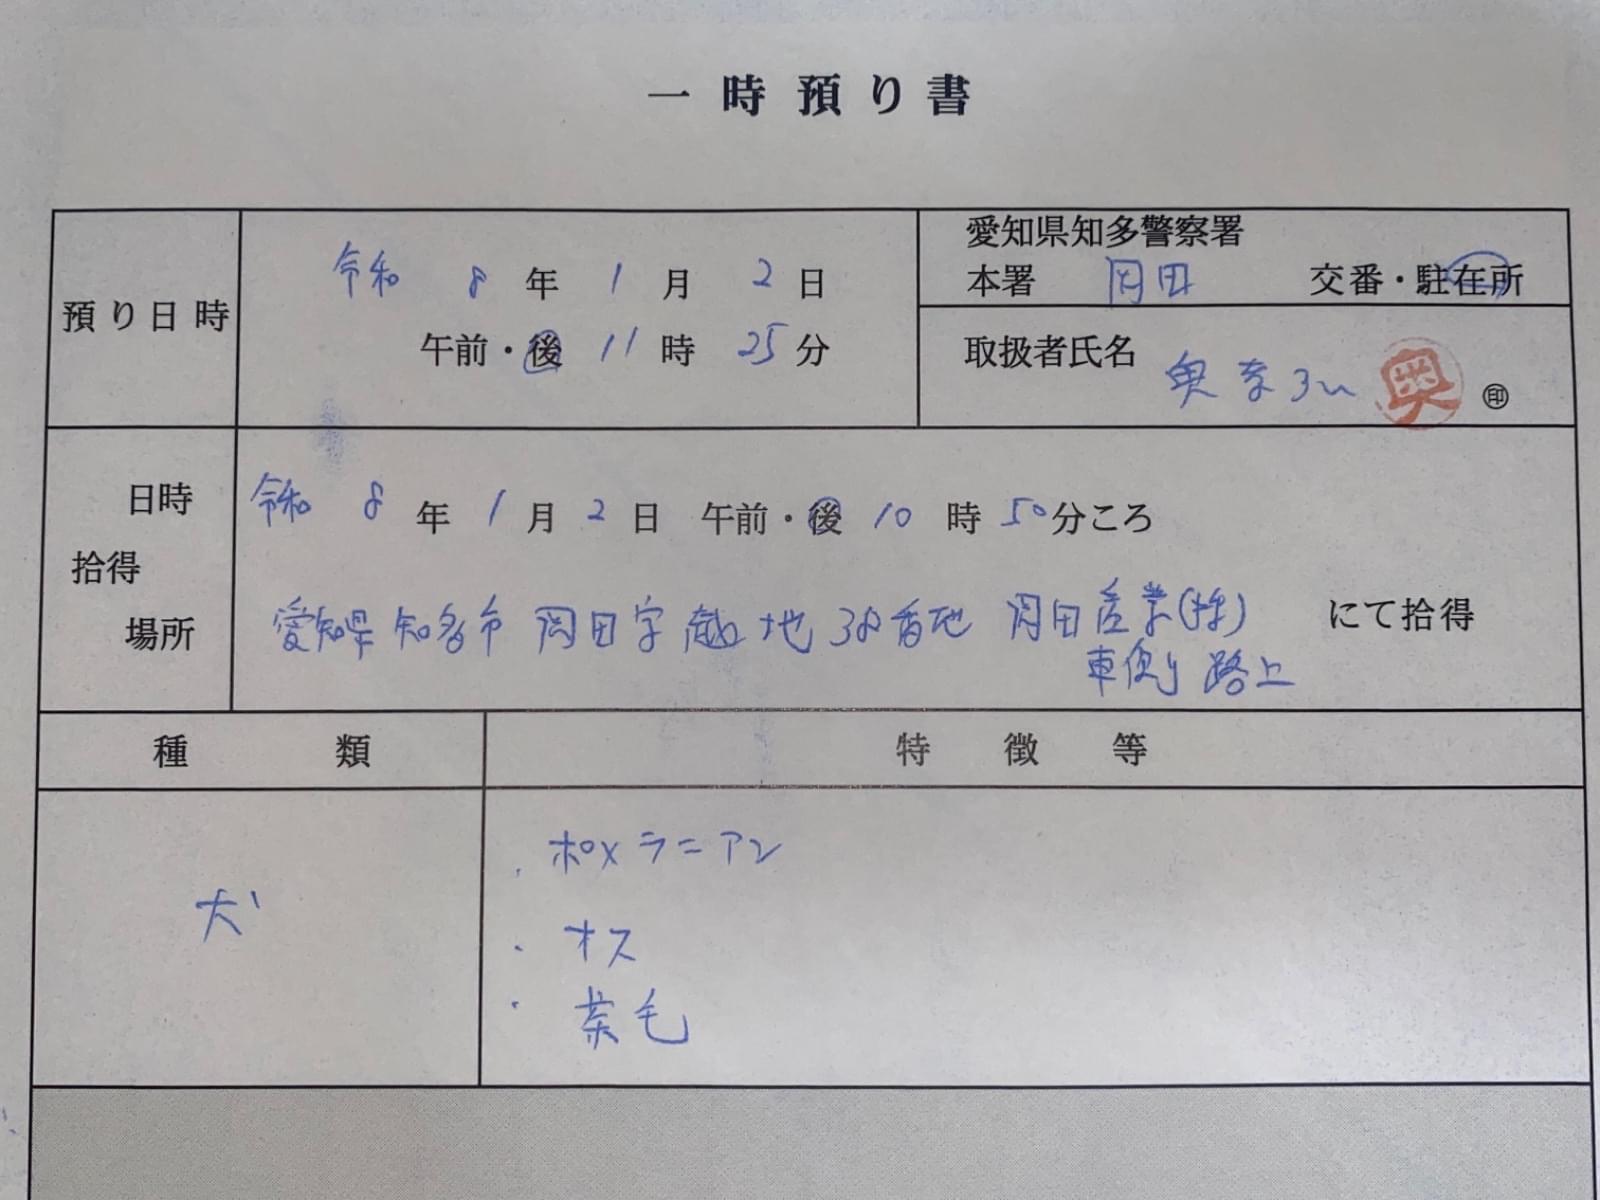 一時預り書
預り日時
令和 8 年 1 月 2 日
午前・後 11 時 25 分
愛知県知多警察署
本署 岡田 交番・駐在所
取扱者氏名 奥 奥 ㊞
拾得 日時 令和 8 年 1 月 2 日 午前・後 10 時 50 分ころ
場所 愛知県知多市岡田字越地38番地 岡田産業(株) にて拾得
車側 路上
種類 特徴等
犬
・ポメラニアン
・オス
・茶毛